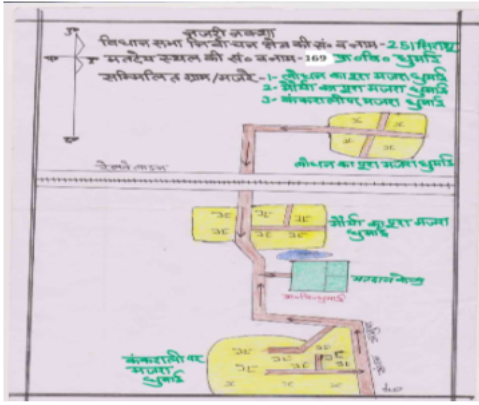 नजरी नक्शा
विधान सभा निर्वाचन क्षेत्र की सं० व नाम - 251 सिराथू
मतदेय स्थल की सं० व नाम - 169 प्रा० वि० धुमाई
सम्मिलित ग्राम/मजरे - 1- लोधन का पूरा मजरा धुमाई
2- मौर्या का पूरा मजरा धुमाई
3- कंकराली पर मजरा धुमाई
लोधन का पूरा मजरा धुमाई
रेलवे लाइन
मौर्या का पूरा मजरा
धुमाई
मतदान केन्द्र
प्रा० वि० धुमाई
कंकराली पर
मजरा
धुमाई